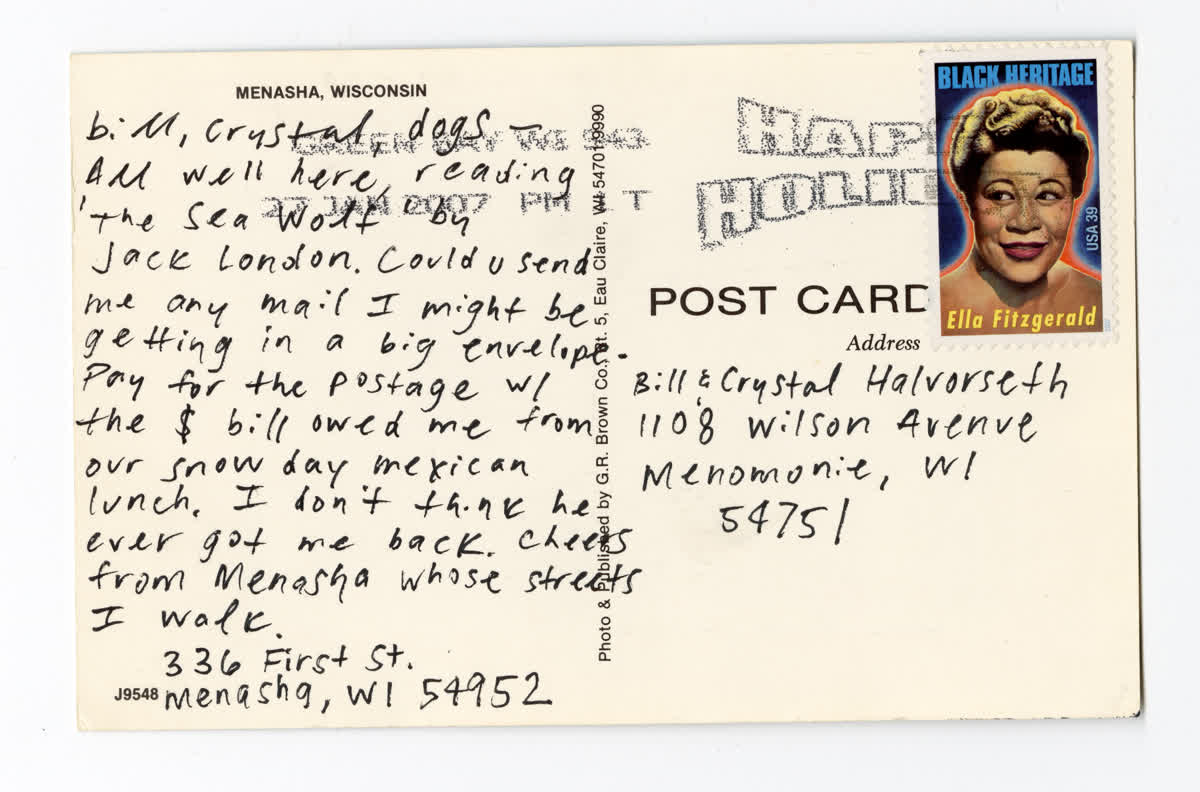 MENASHA, WISCONSIN
bill, Crystal, dogs –
All well here, reading
'the Sea Wolf' by
Jack London. Could u send
me any mail I might be
getting in a big envelope.
Pay for the postage w/
the $ bill owed me from
our snow day mexican
lunch. I don't think he
ever got me back. cheers
from Menasha whose streets
I walk.
336 First St.
J9548 Menasha, WI 54952
GREEN BAY WI 543
27 JAN 2007 PM T
Photo & Published by G.R. Brown Co., Rt. 5, Eau Claire, WI 54701-9990
HAP
HOLID
BLACK HERITAGE
USA 39
Ella Fitzgerald
POST CARD
Address
Bill & Crystal Halvorseth
1108 Wilson Avenue
Menomonie, WI
54751